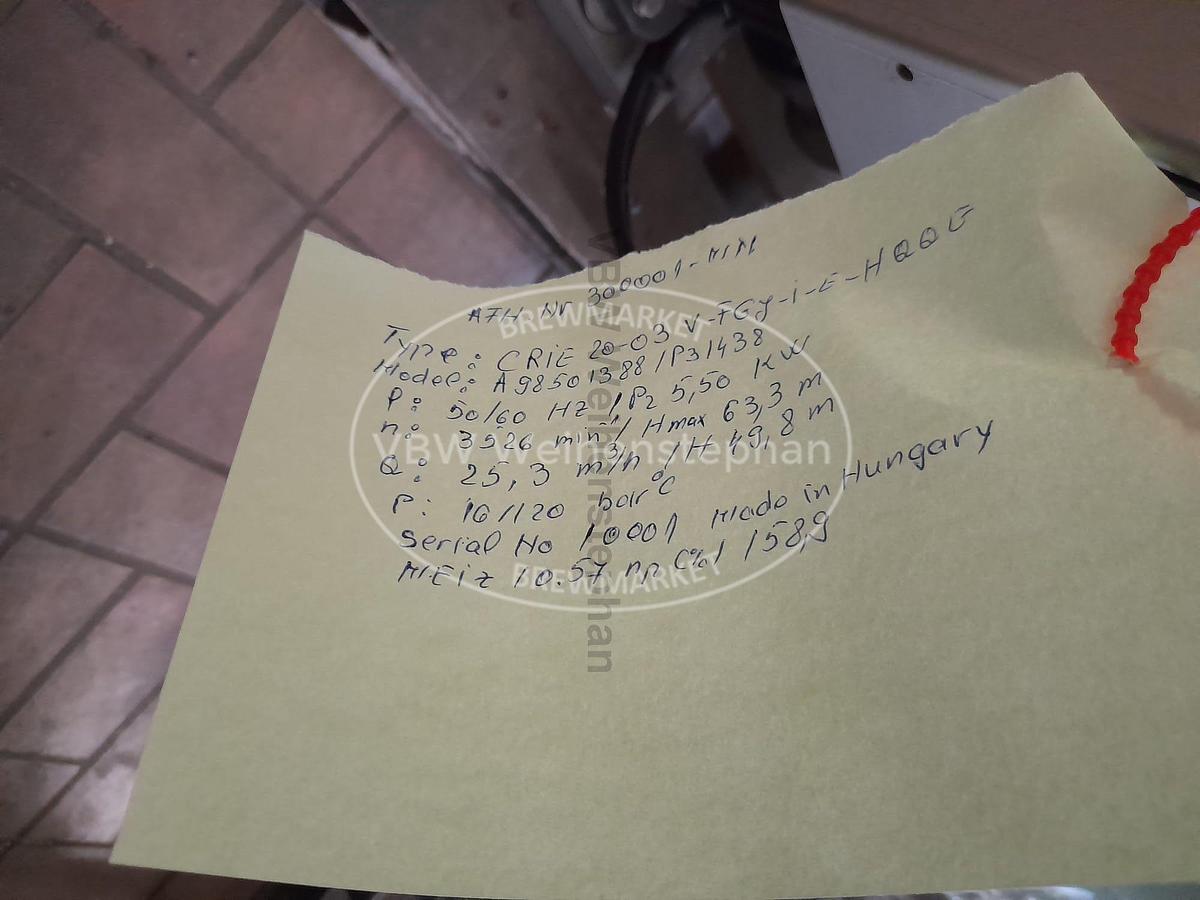 AFH Nr 300001-MM
Type: CRIE 20-03 V-FGJ-i-E-HQQE
Model: A98501388 / P31438
P: 50/60 Hz / P2 5,50 KW
n: 3526 min⁻¹ / Hmax 63,3 m
Q: 25,3 m³/h / H 49,8 m
P: 16/120 bar°C
Serial No 10001 Made in Hungary
MEi ≥ 10.57 np (%) 158,9
BREWMARKET
VBW Weihenstephan
BREWMARKET
VBW Weihenstephan